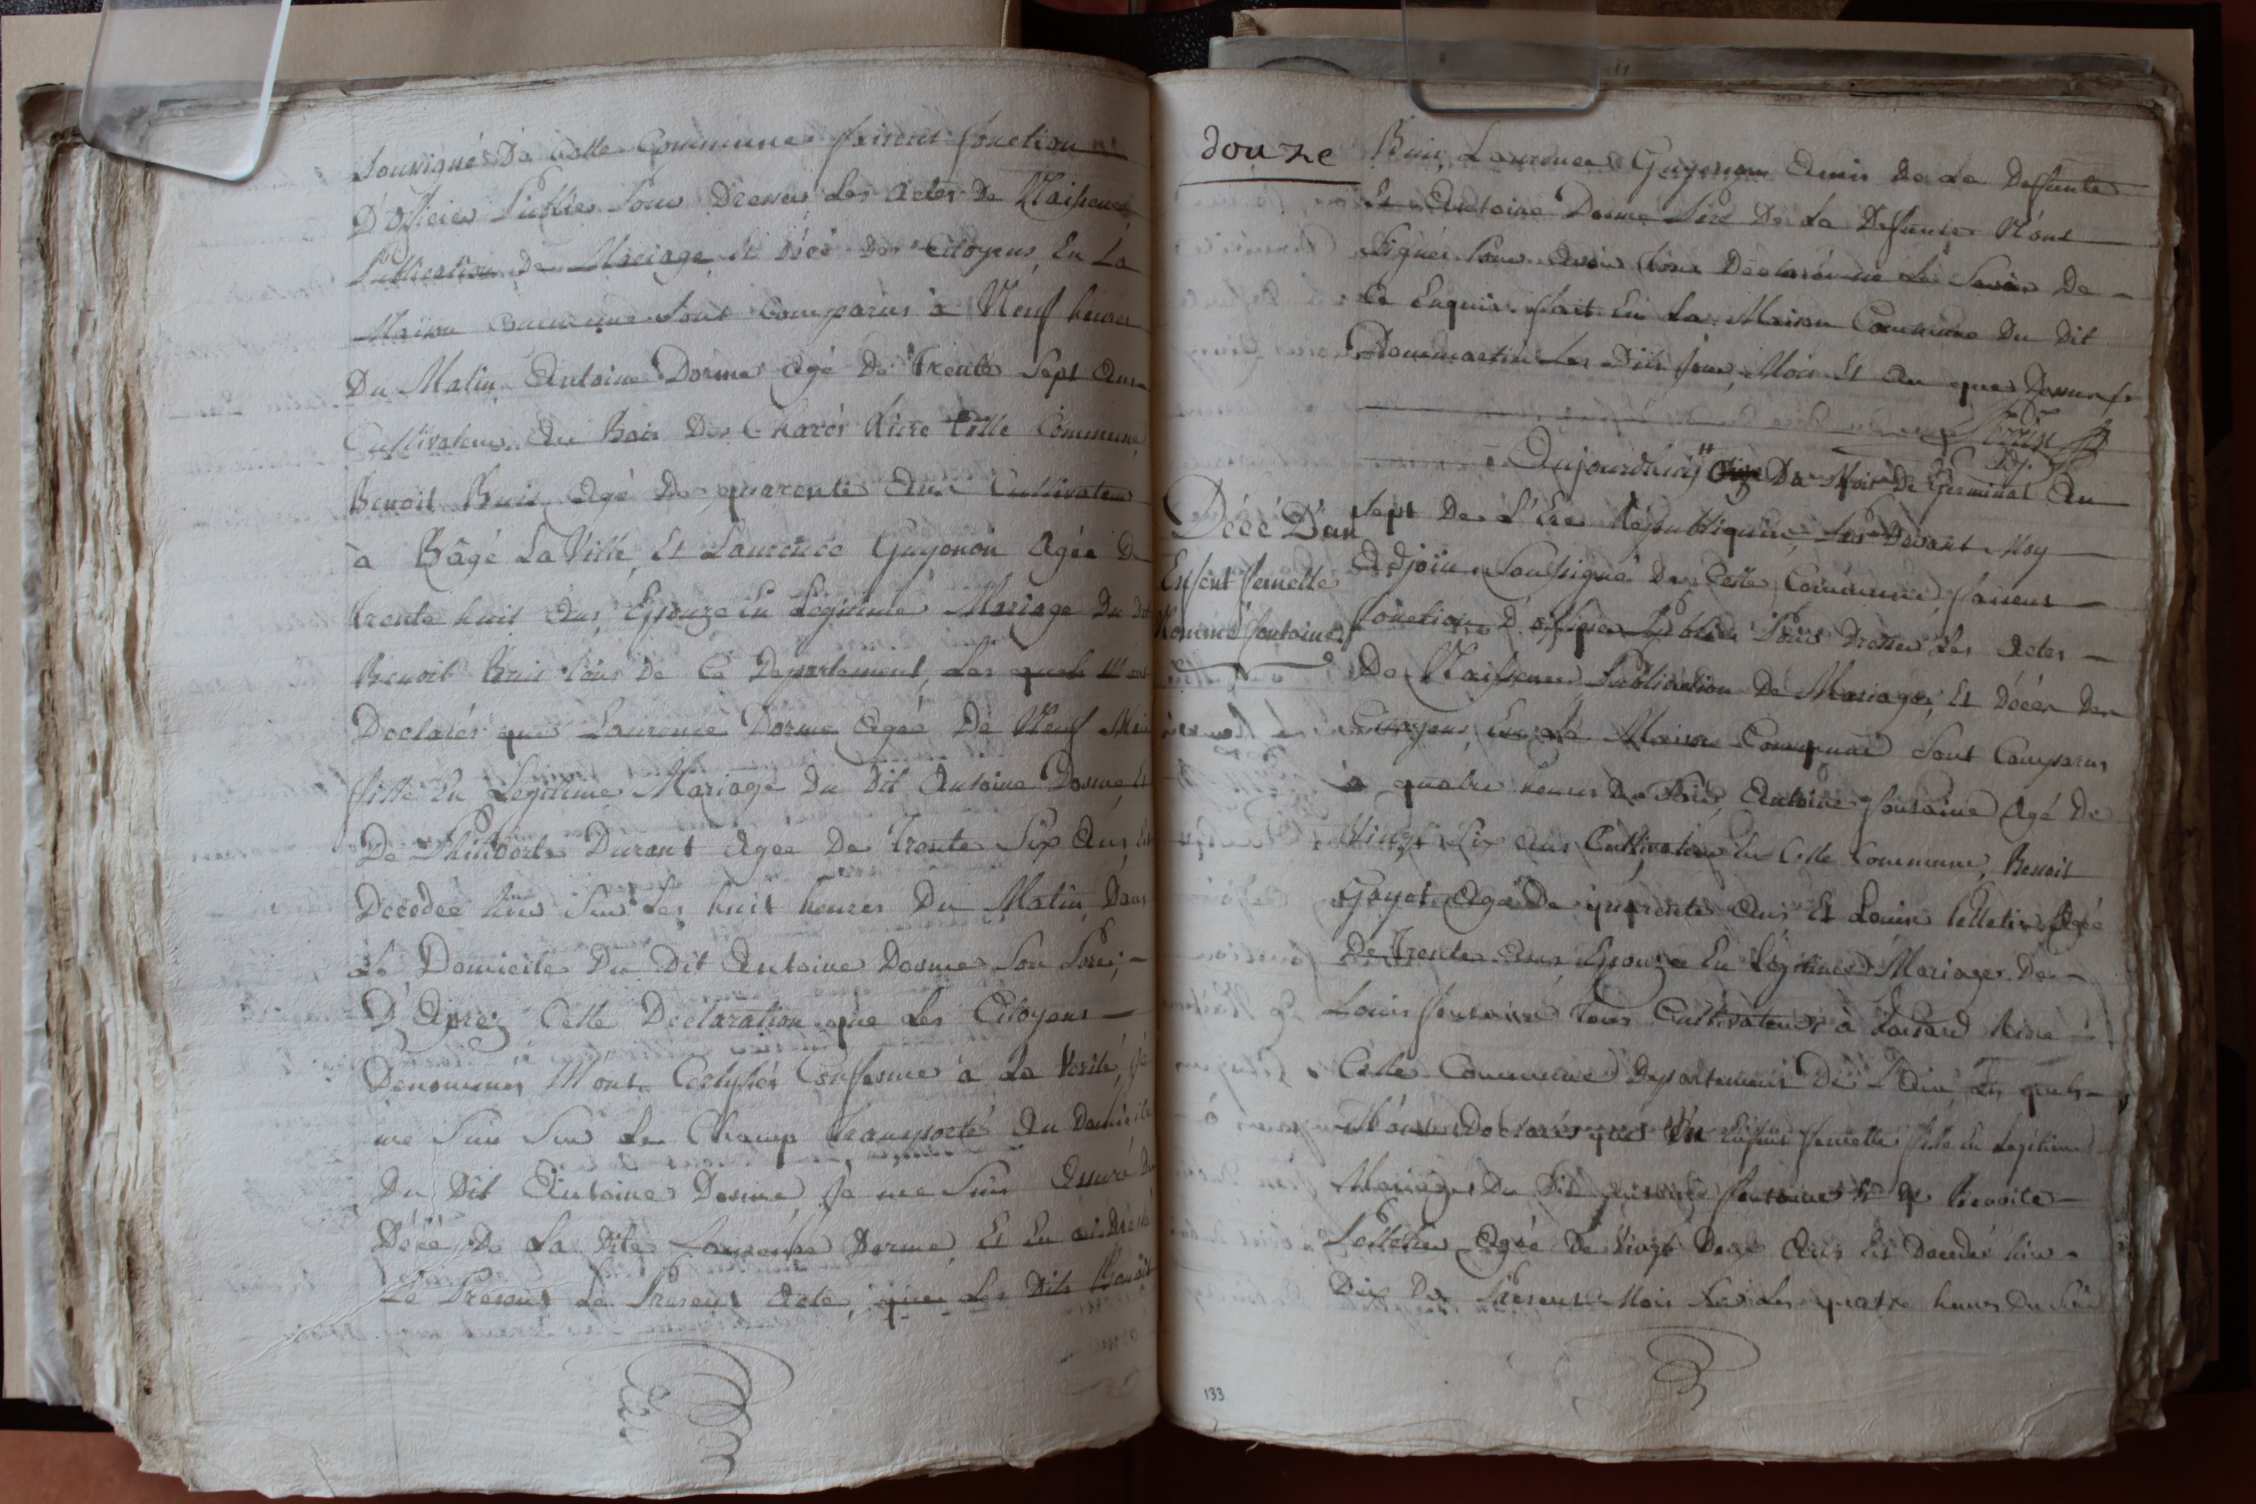 Soussigné De Cette Commune faisent fonction
D'officier Public Pour Dresser Les Actes De Naissences
Publication De Mariage Et Décé Des Citoyens, En La
Maison Commune Sont Comparus à Neuf heures
Du Matin Antoine Dorme Agé De Trente Sept Ans
Cultivateur Au Bois De Charés Rière Cette Commune
Benoit Buis Agé De quarente Ans Cultivateur
à Bâgé La Ville, Et Laurence Guyonon Agée De
trente huit Ans, Epouze En Legitime Mariage Du dit
Benoit Buis tous De Ce Departement, Les quels M'ont
Declarés que Laurence Dorme Agée De Neuf Mois
fille En Legitime Mariage Du Dit Antoine Dorme, Et
De Philiberte Durant Agée De Trente Six Ans, Est
Décédée hier Sur Les huit heures Du Matin Dans
Le Domicile Du Dit Antoine Dorme Son Père,
D'Aprez Cette Declaration que Les Citoyens
Denommes M'ont Certifiés Conforme à La Verité, Je
me Suis Sur Le Champ Transporté Au Domicile
Du Dit Antoine Dorme, Je me Suis Assuré Du
Décé De La Dite Laurence Dorme Et En ai Dressé
Le Present Le Present Acte, que Les Dits Benoit
douze
Buis, Laurence Guyonon Amis De La Deffunte
Et Antoine Dorme Père De La Deffunte N'ont
Signés Pour Avoir tous Declarés ne Le Savoir De
Ce Enquis fait En La Maison Commune Du Dit
Dommartin Les Dits Jour, Mois Et An que Dessus
Adj.
Décé D'un
Enfent femelle
Nommé fontaine
Aujourdhuy Onze Du Mois De Germinal An
Sept De L'Ere Republiquaine, Par Devant Moy
Adjoin Soussigné De Cette Commune, faisent
fonction D'officier Public Pour Dresser Les Actes
De Naissences Publication De Mariages, Et Décés Des
Citoyens, En La Maison Commune Sont Comparus
à quatre heures Du Soir, Antoine fontaine Agé De
Vingt Six Ans Cultivateur En Cette Commune, Benoit
Goyet Agé De quarente Ans Et Louise Pelletier Agée
De Trente Ans, Epouze En Légitime Mariage De
Louis fontaine tous Cultivateurs à Loisard Rière
Cette Commune Departement De L'Ain, Les quels
M'ont Declarés que Un Enfent femelle fille En Legitime
Mariage Du Dit Antoine fontaine Et De Benoite
Pelletier Agée De Vingt Deux Ans Est Decedé hier
Dix Du Present Mois Sur Les quatre heures Du Soir
133